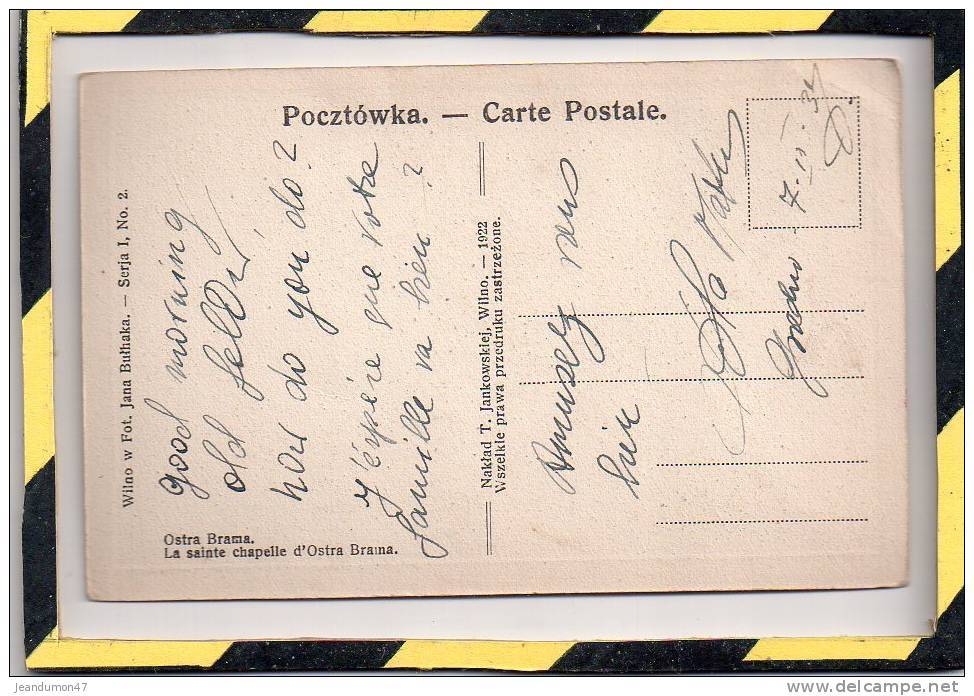 Pocztówka. — Carte Postale.
Wilno w Fot. Jana Bułhaka. — Serja I, No. 2.
good morning
old fellow,
how do you do?
J'éspère que votre
famille va bien?
Ostra Brama.
La sainte chapelle d'Ostra Brama.
Nakład T. Jankowskiej, Wilno. — 1922
Wszelkie prawa przedruku zastrzeżone.
Amusez vous
bien
7.
Grodno
jeandumon47
delcampe.net